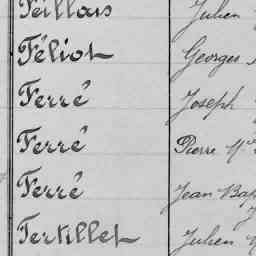 Feillais Julien
Féliot Georges
Ferré Joseph
Ferré Pierre M.
Ferré Jean Bap
Fertillet Julien